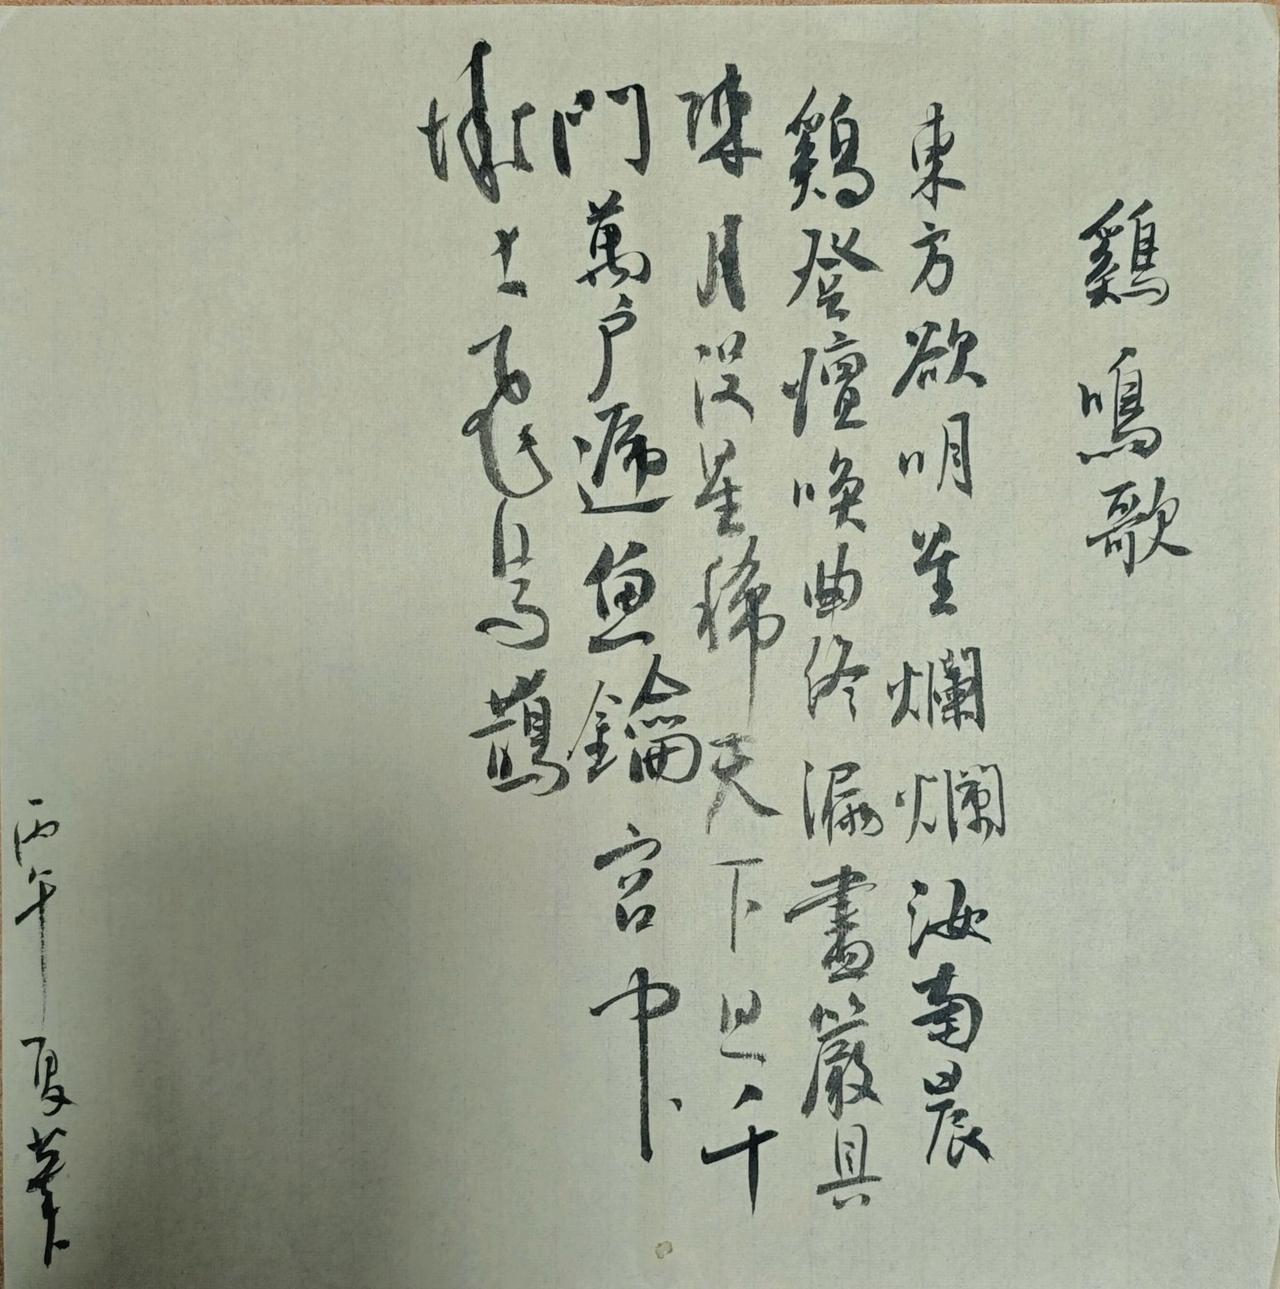 鷄鳴歌
東方欲明星爛爛汝南晨
鷄登壇喚曲終漏盡嚴具
陳月没星稀天下旦千
門萬户遞魚鑰宫中
城上飛烏鵲
丙午夏華